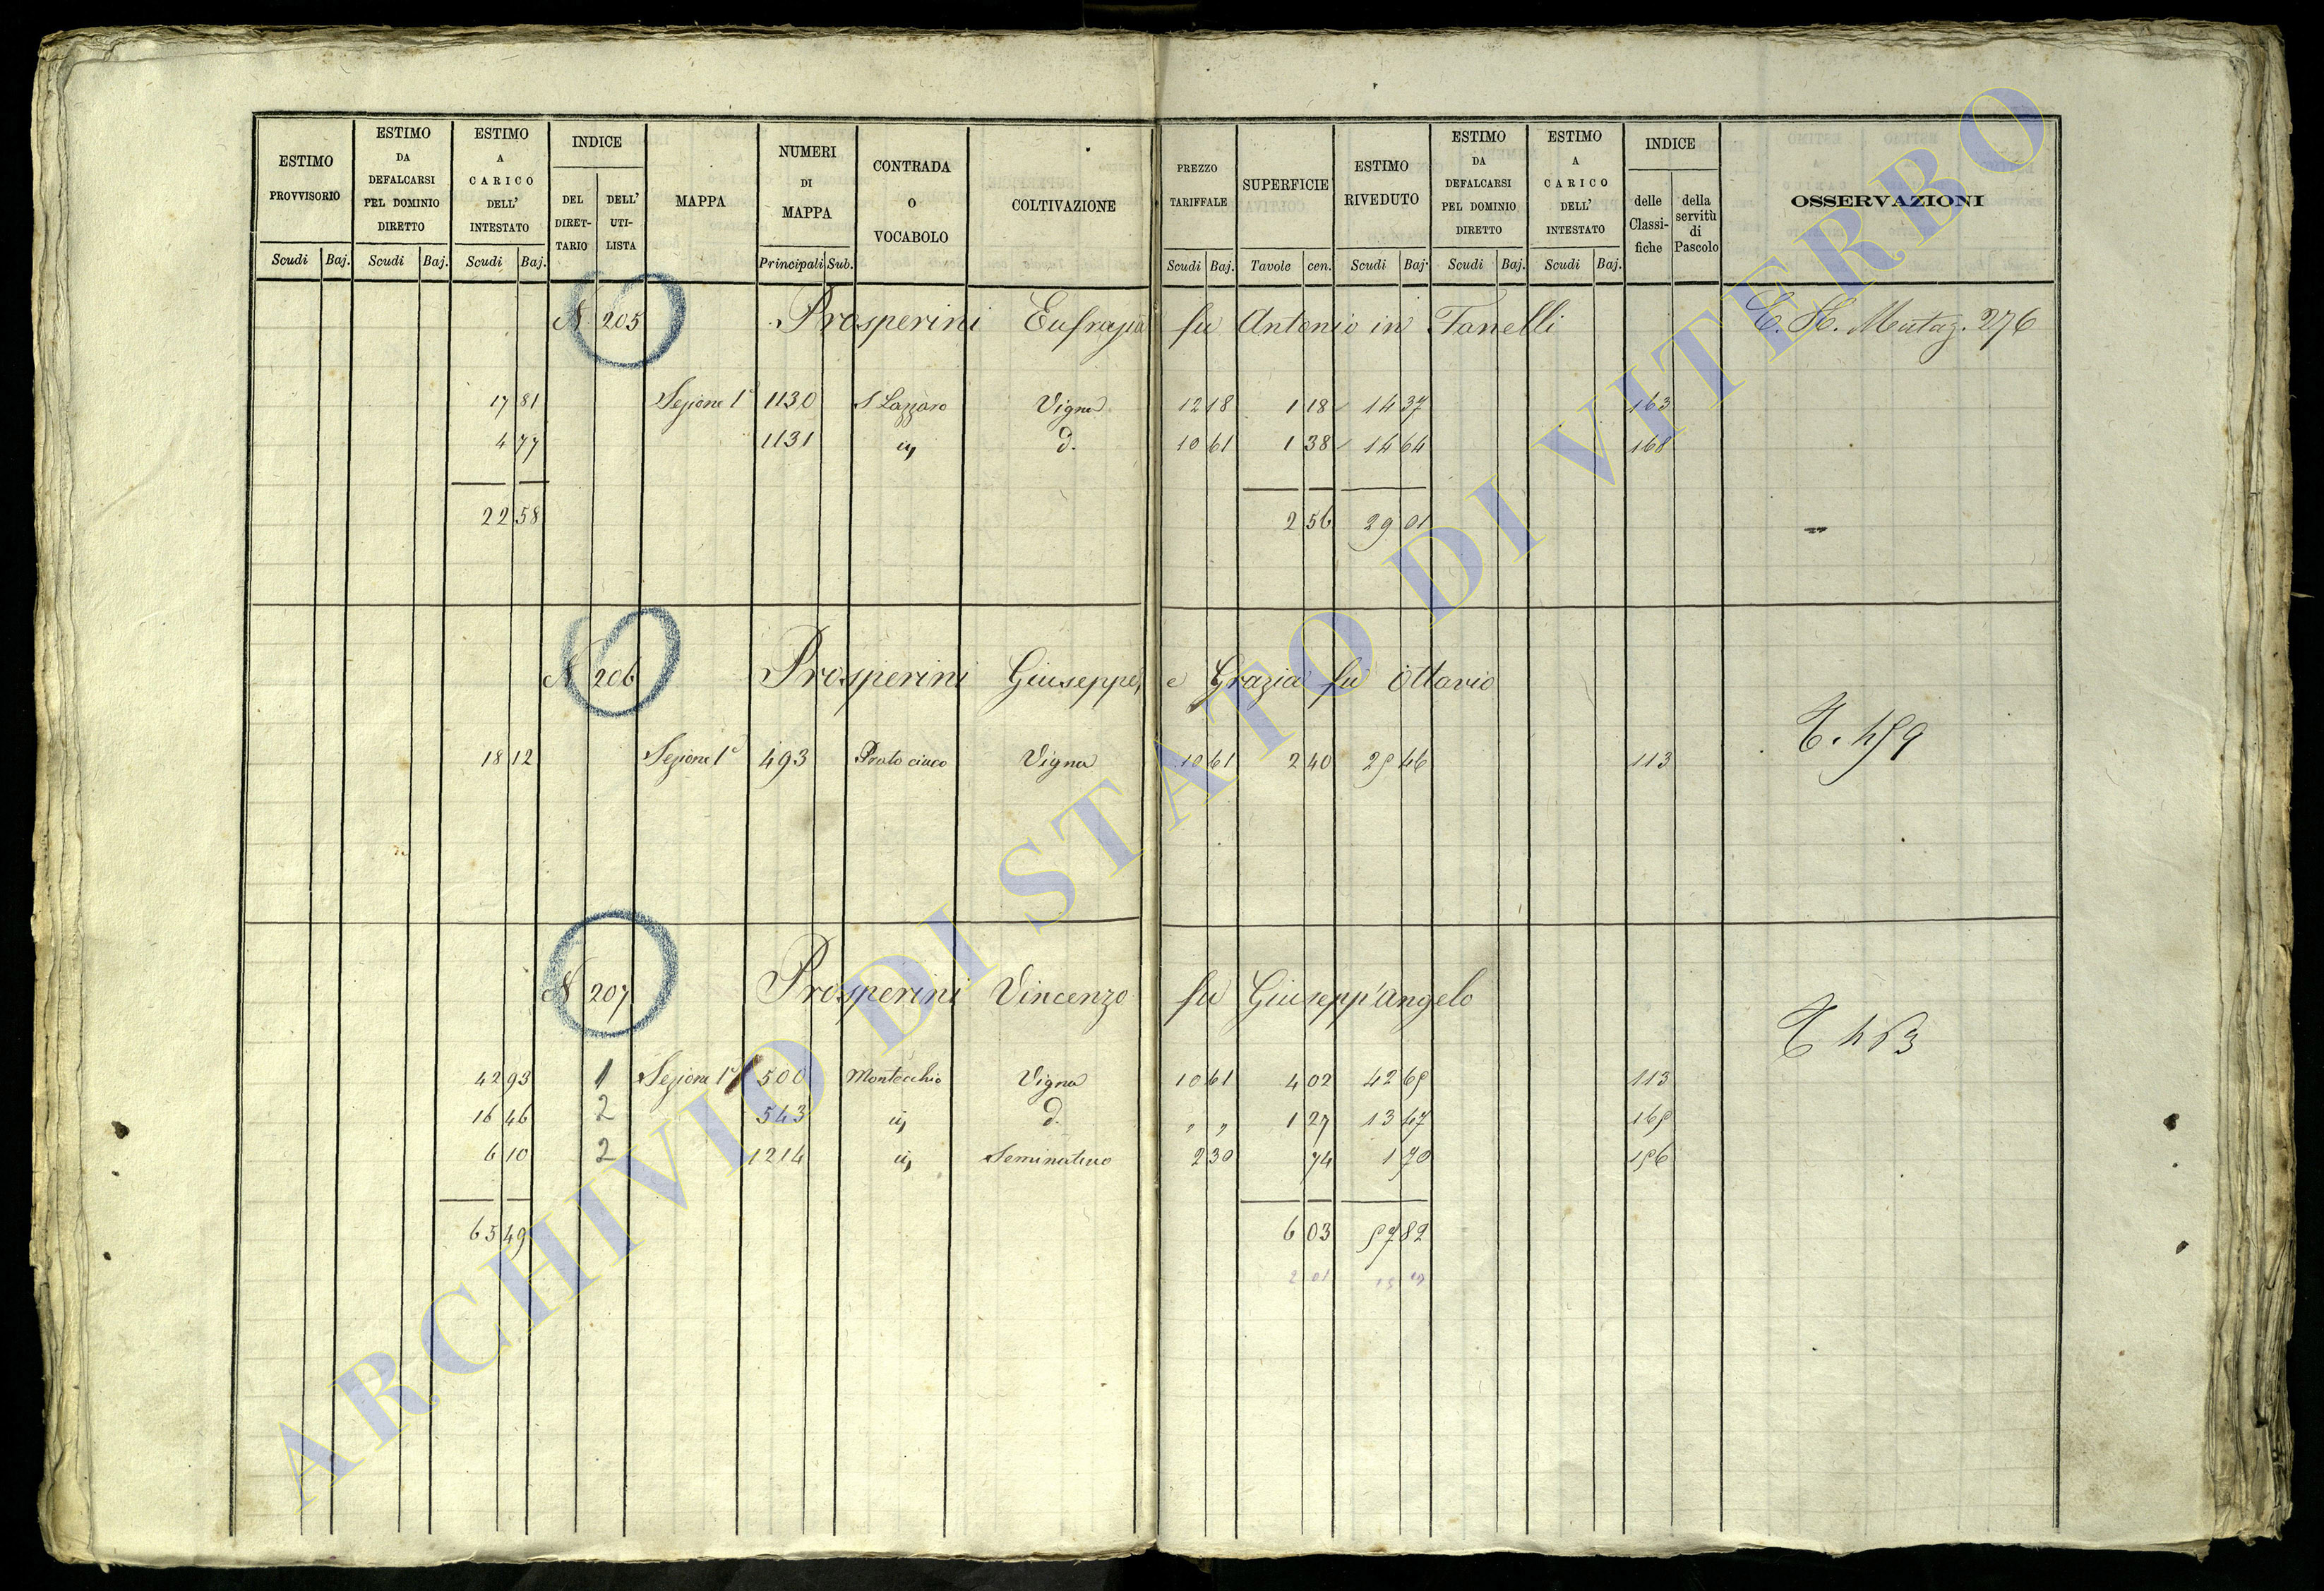 ESTIMO PROVVISORIO
Scudi Baj.
ESTIMO DA DEFALCARSI PEL DOMINIO DIRETTO
Scudi Baj.
ESTIMO A CARICO DELL' INTESTATO
Scudi Baj.
INDICE
DEL DIRET-TARIO
DELL' UTI-LISTA
MAPPA
NUMERI DI MAPPA
Principali Sub.
CONTRADA O VOCABOLO
COLTIVAZIONE
PREZZO TARIFFALE
Scudi Baj.
SUPERFICIE
Tavole cen.
ESTIMO RIVEDUTO
Scudi Baj.
ESTIMO DA DEFALCARSI PEL DOMINIO DIRETTO
Scudi Baj.
ESTIMO A CARICO DELL' INTESTATO
Scudi Baj.
INDICE
delle Classi-fiche
della servitù di Pascolo
OSSERVAZIONI
N 205 Prosperini Eufrasia fu Antonio in Fanelli 276
17 81 Sezione 1ª 1130 S Lazzaro Vigna 12 18 1 18 14 37 163
4 77 1131 id d. 10 61 1 38 14 64 168
22 58 2 56 29 01
N 206 Prosperini Giuseppe, e Grazia fu Ottavio
18 12 Sezione 1ª 493 Vigna 10 61 2 40 25 46 113
T. 459
N 207 Prosperini Vincenzo fu Giusepp'angelo
42 93 1 Sezione 1ª 500 Montecchio Vigna 10 61 4 02 42 65 113
16 46 2 543 id d. " " 1 27 13 47 165
6 10 2 1214 id Seminativo 2 30 74 1 70 156
65 49 6 03 57 82
2 01
ARCHIVIO DI STATO DI VITERBO